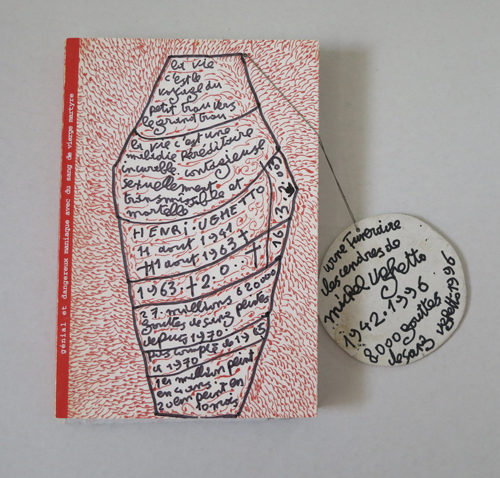 génial et dangereux maniaque avec du sang de vierge martyre
la vie
c'est le
voyage du
petit trou vers
le grand trou
la vie c'est une
maladie héréditaire
incurable. contagieuse
sexuellement
transmissible et
mortelle
HENRI. UGHETTO
11 août 1941
11 août 1963 †
1963. † 2.0.. †
27 millions 620000
gouttes de sang peintes
depuis 1970.
pas compté de 1965
à 1970.
1er million peint
en 4 ans.
20em peint en
10 mois
urne funéraire
les cendres de
michel Ughetto
1942. 1996
8000 gouttes
de sang
Ughetto 1996